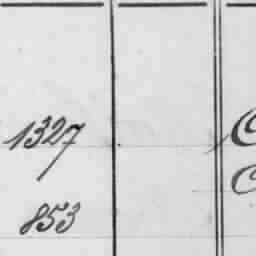 1327
853